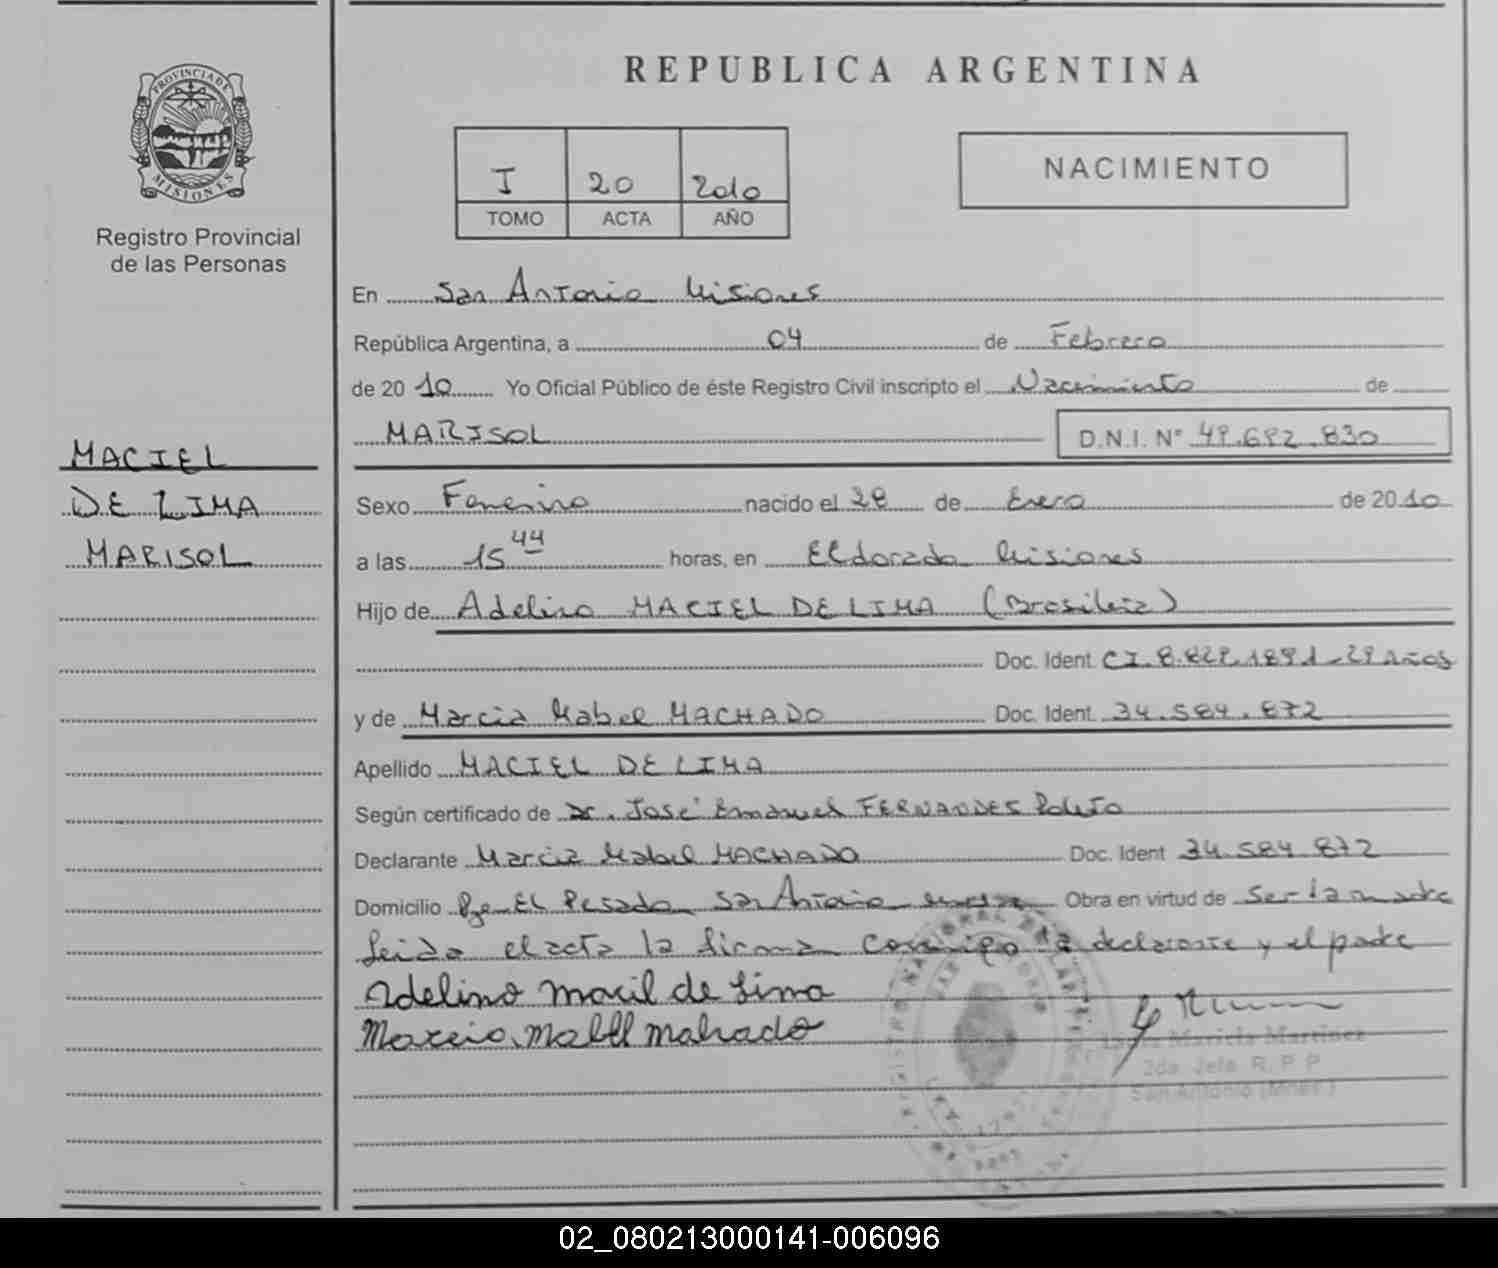 PROVINCIA DE
MISIONES
Registro Provincial
de las Personas
MACIEL
DE LIMA
MARISOL
REPUBLICA ARGENTINA
I 20 2010
TOMO ACTA AÑO
NACIMIENTO
En San Antonio Misiones
República Argentina, a 04 de Febrero
de 20 10 Yo Oficial Público de éste Registro Civil inscripto el Nacimiento de
MARISOL
D.N.I. N° 49.692.830
Sexo Femenino nacido el 28 de Enero de 20 10
a las 15 44 horas, en Eldorado Misiones
Hijo de Adelino MACIEL DE LIMA (Brasileiz)
Doc. Ident. CI. 8.829.1891-29 Años
y de Marcia Mabel MACHADO Doc. Ident. 34.584.872
Apellido MACIEL DE LIMA
Según certificado de Dr. José Emanuel FERNANDES Poleto
Declarante Marcia Mabel MACHADO Doc. Ident 34.584.872
Domicilio Pje El Pesado San Antonio Obra en virtud de Ser la madre
Leida el acta la firma Conmigo la declarante y el padre
Adelino Macil de Lima
Marcio Mabel Mahado
Maricla Martinez
2da. Jefe R. P. P
San Antonio (Mnes.)
02_080213000141-006096